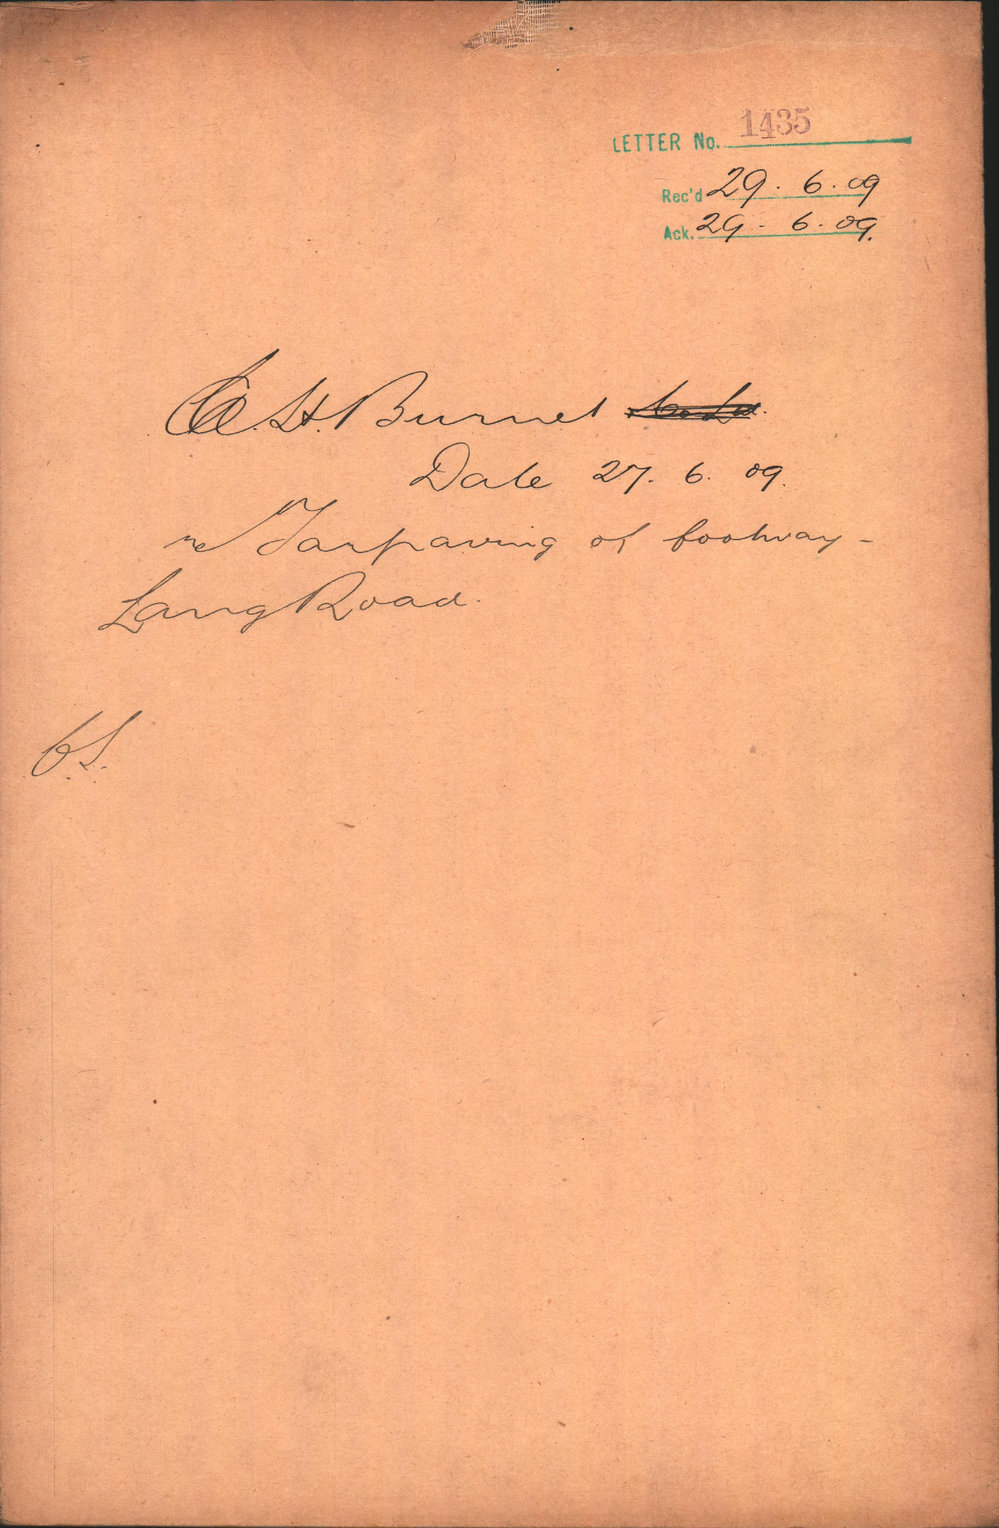 LETTER No. 1435
Rec'd 29. 6. 09
Ack. 29. 6. 09.
H. Burnet Co Ld.
Date 27. 6. 09.
re Tarpaving of footway -
Lang Road.